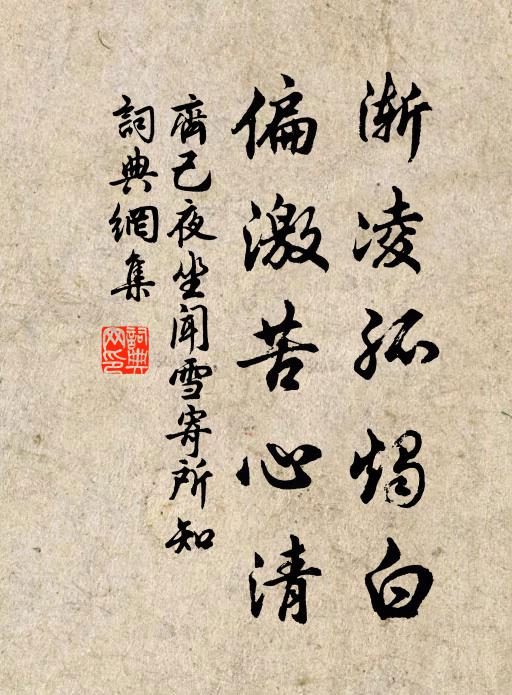 漸凌孤燭白
偏激苦心清
齊己夜坐聞雪寄所知
詞典網集
詞典網印